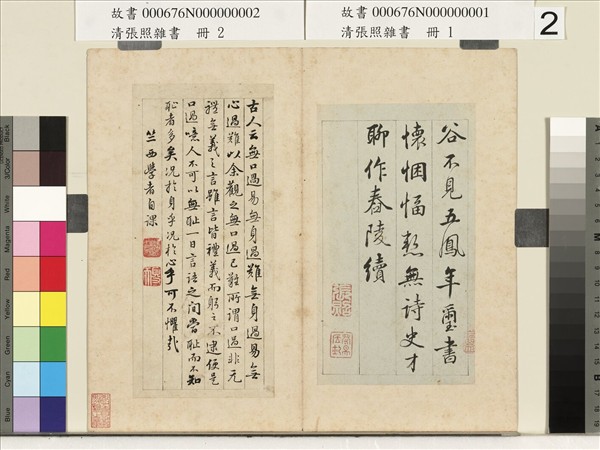 故書 000676N000000002
清張照雜書 冊 2
故書 000676N000000001
清張照雜書 冊 1
2
谷不見五鳳年璽書
懷悃愊慙無詩史才
聊作舂陵續
古人云無口過易無身過難無身過易無
心過難以余觀之無口過已難所謂口過非无
禮無義之言雖言皆禮義而躬之不逮便是
口過噫人不可以無恥一日言語之間當恥而不知
恥者多矣況於身乎況於心乎可不懼哉
竺西學者自課